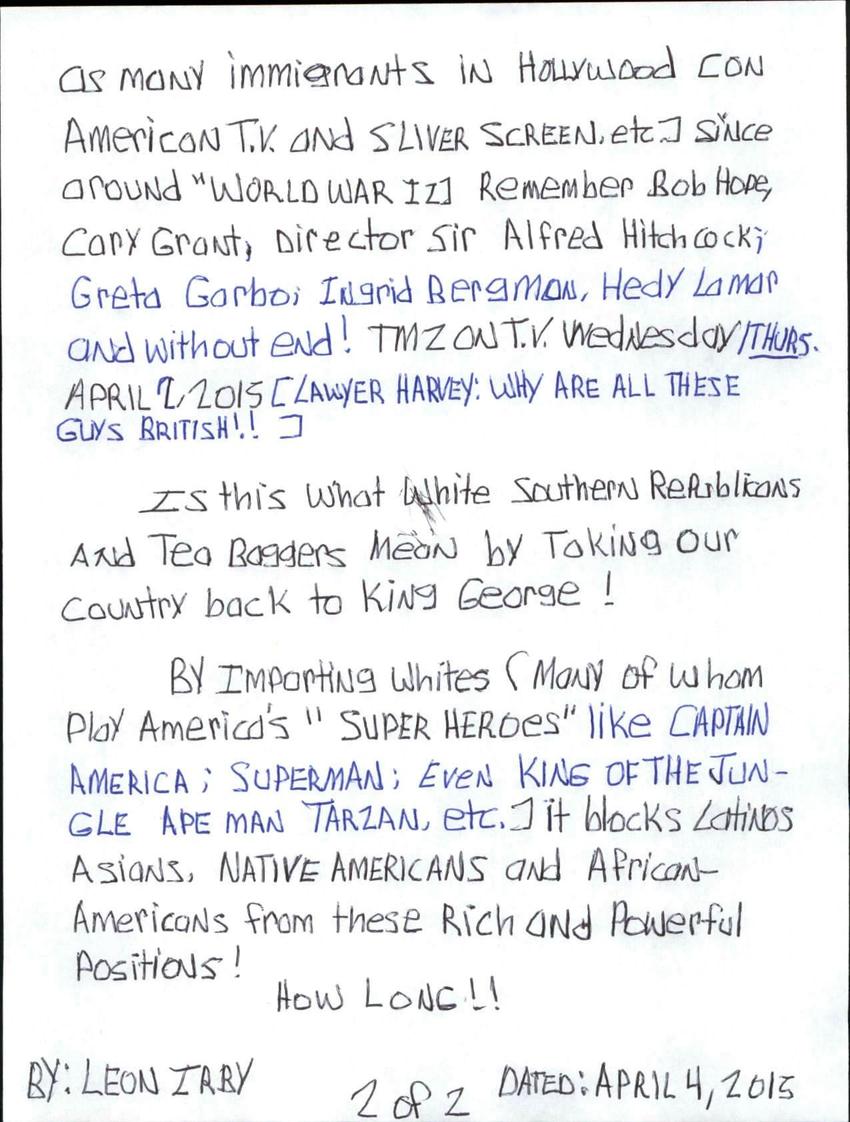 as many immigrants in Hollywood [on
American T.V. and SLIVER SCREEN, etc] since
around "WORLD WAR II] Remember Bob Hope,
Cary Grant; Director Sir Alfred Hitchcock;
Greta Garbo; Ingrid Bergman, Hedy Lamar
and without end! TMZ ON T.V. Wednesday/THURS.
APRIL 2, 2015 [LAWYER HARVEY: WHY ARE ALL THESE
GUYS BRITISH!! ]
Is this what White Southern Republicans
And Tea Baggers Mean by Taking our
Country back to King George!
By Importing Whites (Many of whom
Play America's "SUPER HEROes" like CAPTAIN
AMERICA; SUPERMAN; Even KING OF THE JUN-
GLE APE MAN TARZAN, etc.] it blocks Latinos
Asians, NATIVE AMERICANS and African-
Americans from these Rich and Powerful
Positions!
HOW LONG!!
BY: LEON IRBY
2 of 2
DATED: APRIL 4, 2015